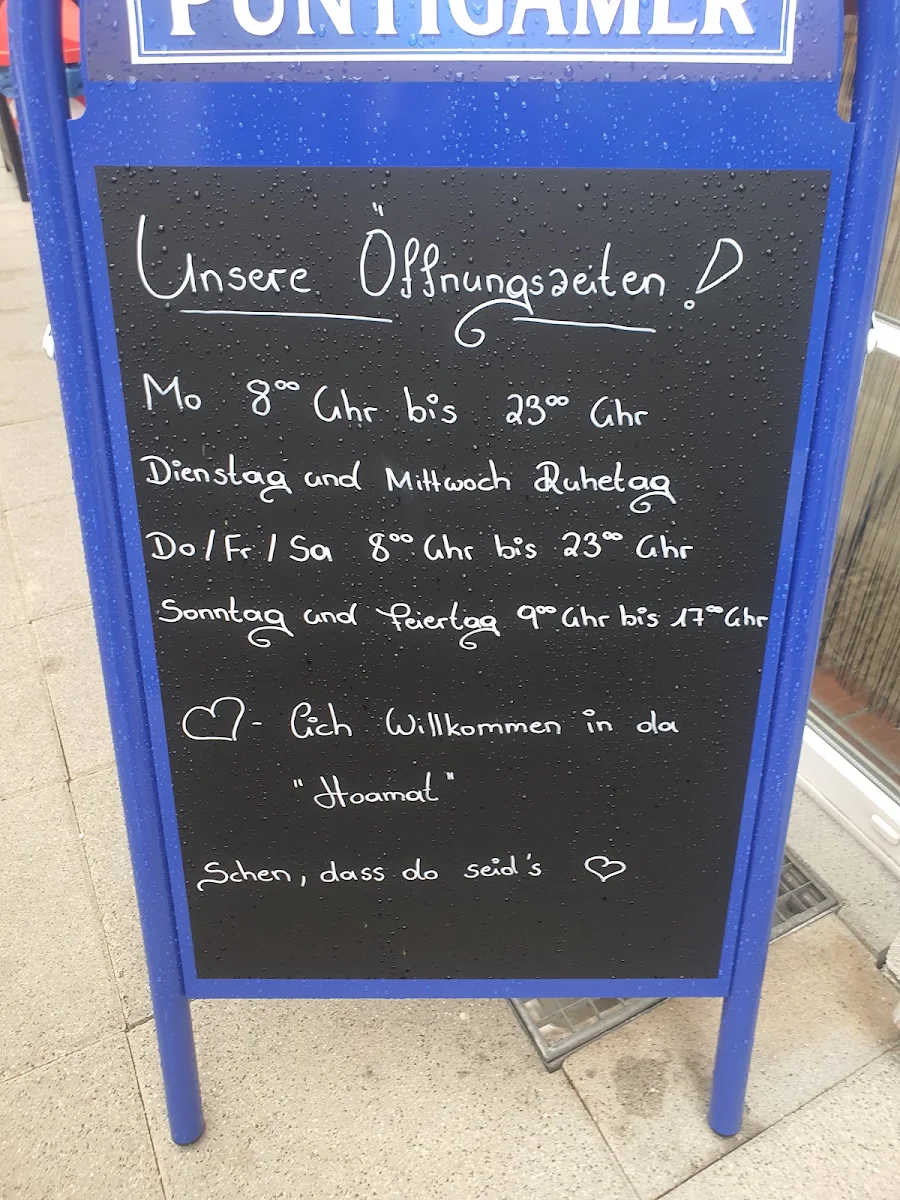 PUNTIGAMER
Unsere Öffnungszeiten!
Mo 8⁰⁰ Uhr bis 23⁰⁰ Uhr
Dienstag und Mittwoch Ruhetag
Do/Fr/Sa 8⁰⁰ Uhr bis 23⁰⁰ Uhr
Sonntag und Feiertag 9⁰⁰ Uhr bis 17⁰⁰ Uhr
♡- lich Willkommen in da
"Hoamat"
Schen, dass do seid's ♡